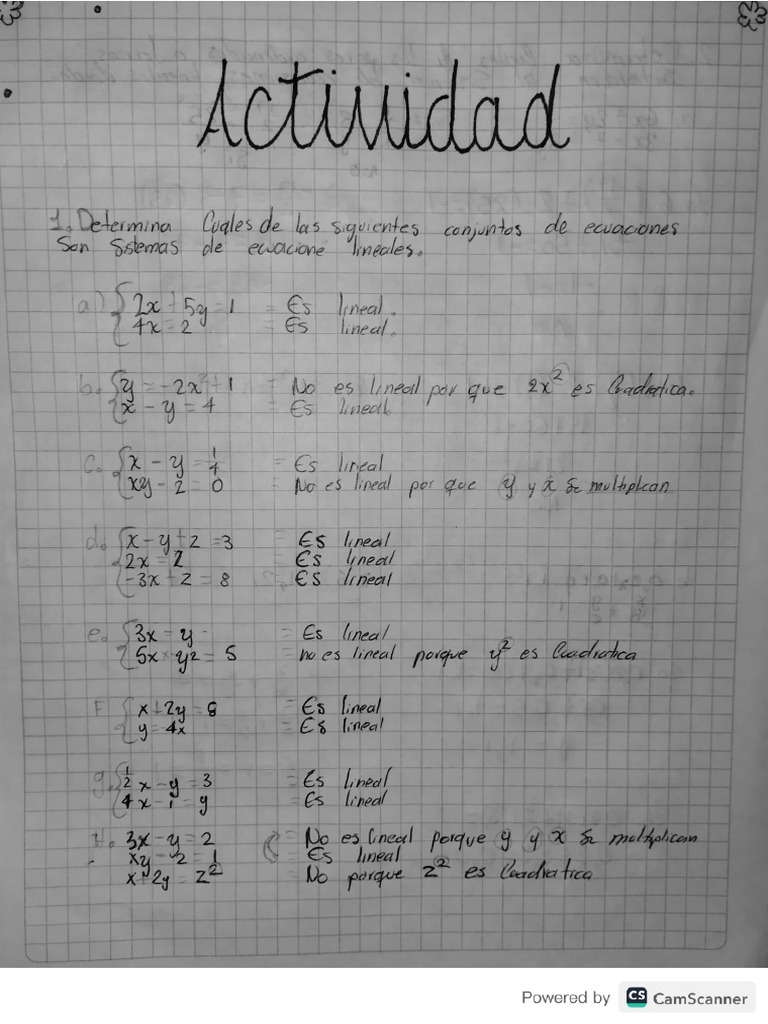 Actividad
1. Determina Cuales de las siguientes conjuntos de ecuaciones
Son Sistemas de ecuacione lineales.
a) 2x + 5y = 1 = Es lineal.
4x = 2 = Es lineal.
b. y = -2x² + 1 = No es lineal por que 2x² es Cuadratica.
x - y = 4 = Es lineal
c. x - y = 1/4 = Es lineal
xy - 2 = 0 = No es lineal por que y y x se multiplican
d. x - y + z = 3 Es lineal
2x = 2 = Es lineal
-3x + z = 8 = Es lineal
e. 3x = y = Es lineal
5x - y2 = 5 = no es lineal porque y² es Cuadratica
F x + 2y = 8 = Es lineal
y = 4x = Es lineal
g. 1/2 x - y = 3 = Es lineal
4x - 1 = y = Es lineal
H. 3x - y = 2 = No es lineal porque y y x se multiplican
xy - 2 = 1 = Es lineal
x + 2y = z² = No porque z² es Cuadratica
Powered by CS CamScanner